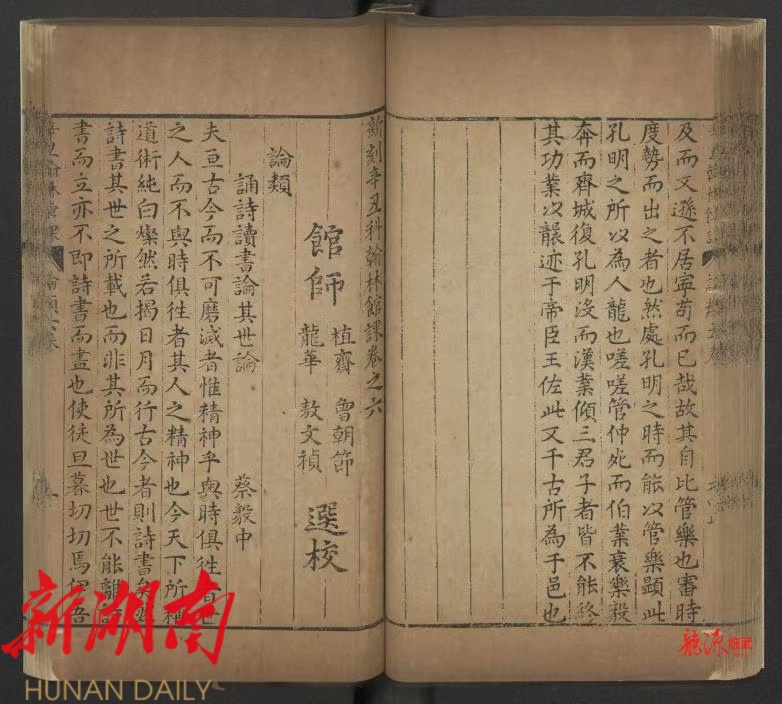 及而又遜不居寧苟而已哉故其自比管樂也審時
度勢而出之者也然處孔明之時而能以管樂顕此
孔明之所以為人龍也嗟嗟管仲死而伯業衰樂毅
奔而齊城復孔明沒而漢業傾三君子者皆不能終
其功業以襲迹于帝臣王佐此又千古所為于邑也
新刻辛丑科翰林館課卷之六
館師
植齋 曾朝節
龍華 敖文禎
選校
論類
誦詩讀書論其世論
蔡毅中
夫亘古今而不可磨滅者惟精神乎與時俱徃者世
之人而不與時俱徃者其人之精神也今天下所稱
道術純白燦然若揭日月而行古今者則詩書矣然
詩書其世之所載也而非其所為世也世不能離詩
書而立亦不即詩書而盡也使徒旦暮切切焉伊吾
新湖南
HUNAN DAILY
龍源 臨武